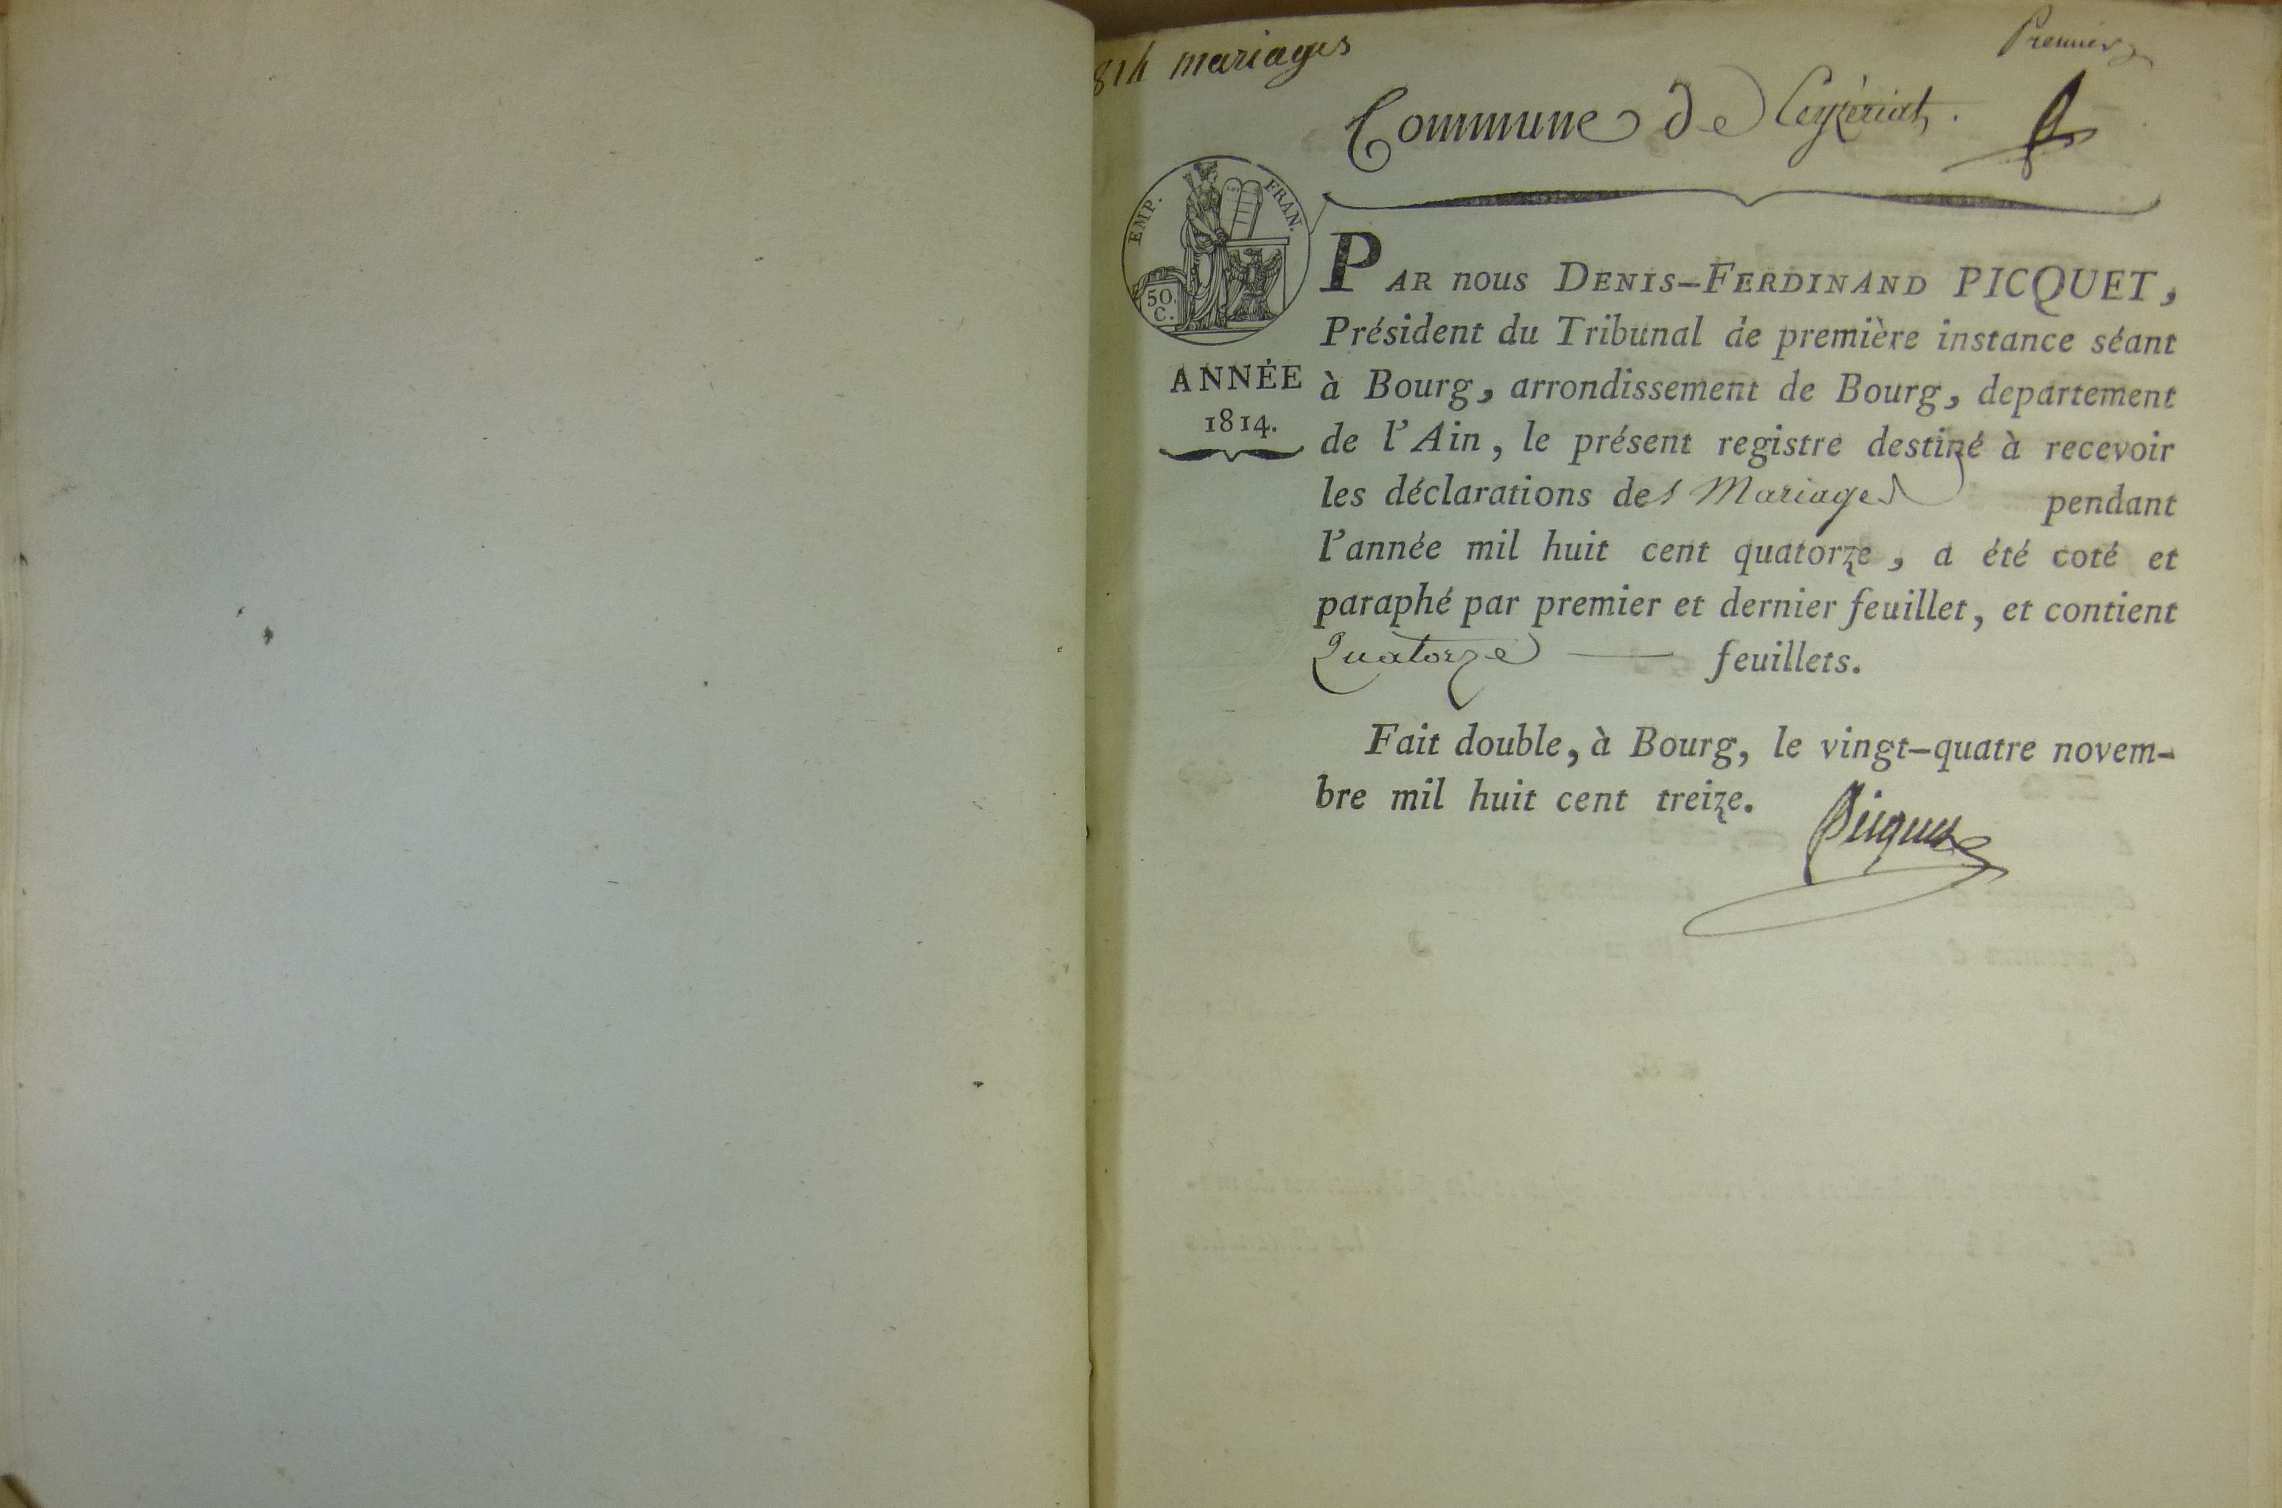 814 mariages
Premier
Commune de Ceyzériat.
EMP. FRAN.
50.
C.
ANNÉE
1814.
PAR nous DENIS-FERDINAND PICQUET,
Président du Tribunal de première instance séant
à Bourg, arrondissement de Bourg, departement
de l'Ain, le présent registre destiné à recevoir
les déclarations des Mariages pendant
l'année mil huit cent quatorze, a été coté et
paraphé par premier et dernier feuillet, et contient
Quatorze — feuillets.
Fait double, à Bourg, le vingt-quatre novem-
bre mil huit cent treize.
Picquet